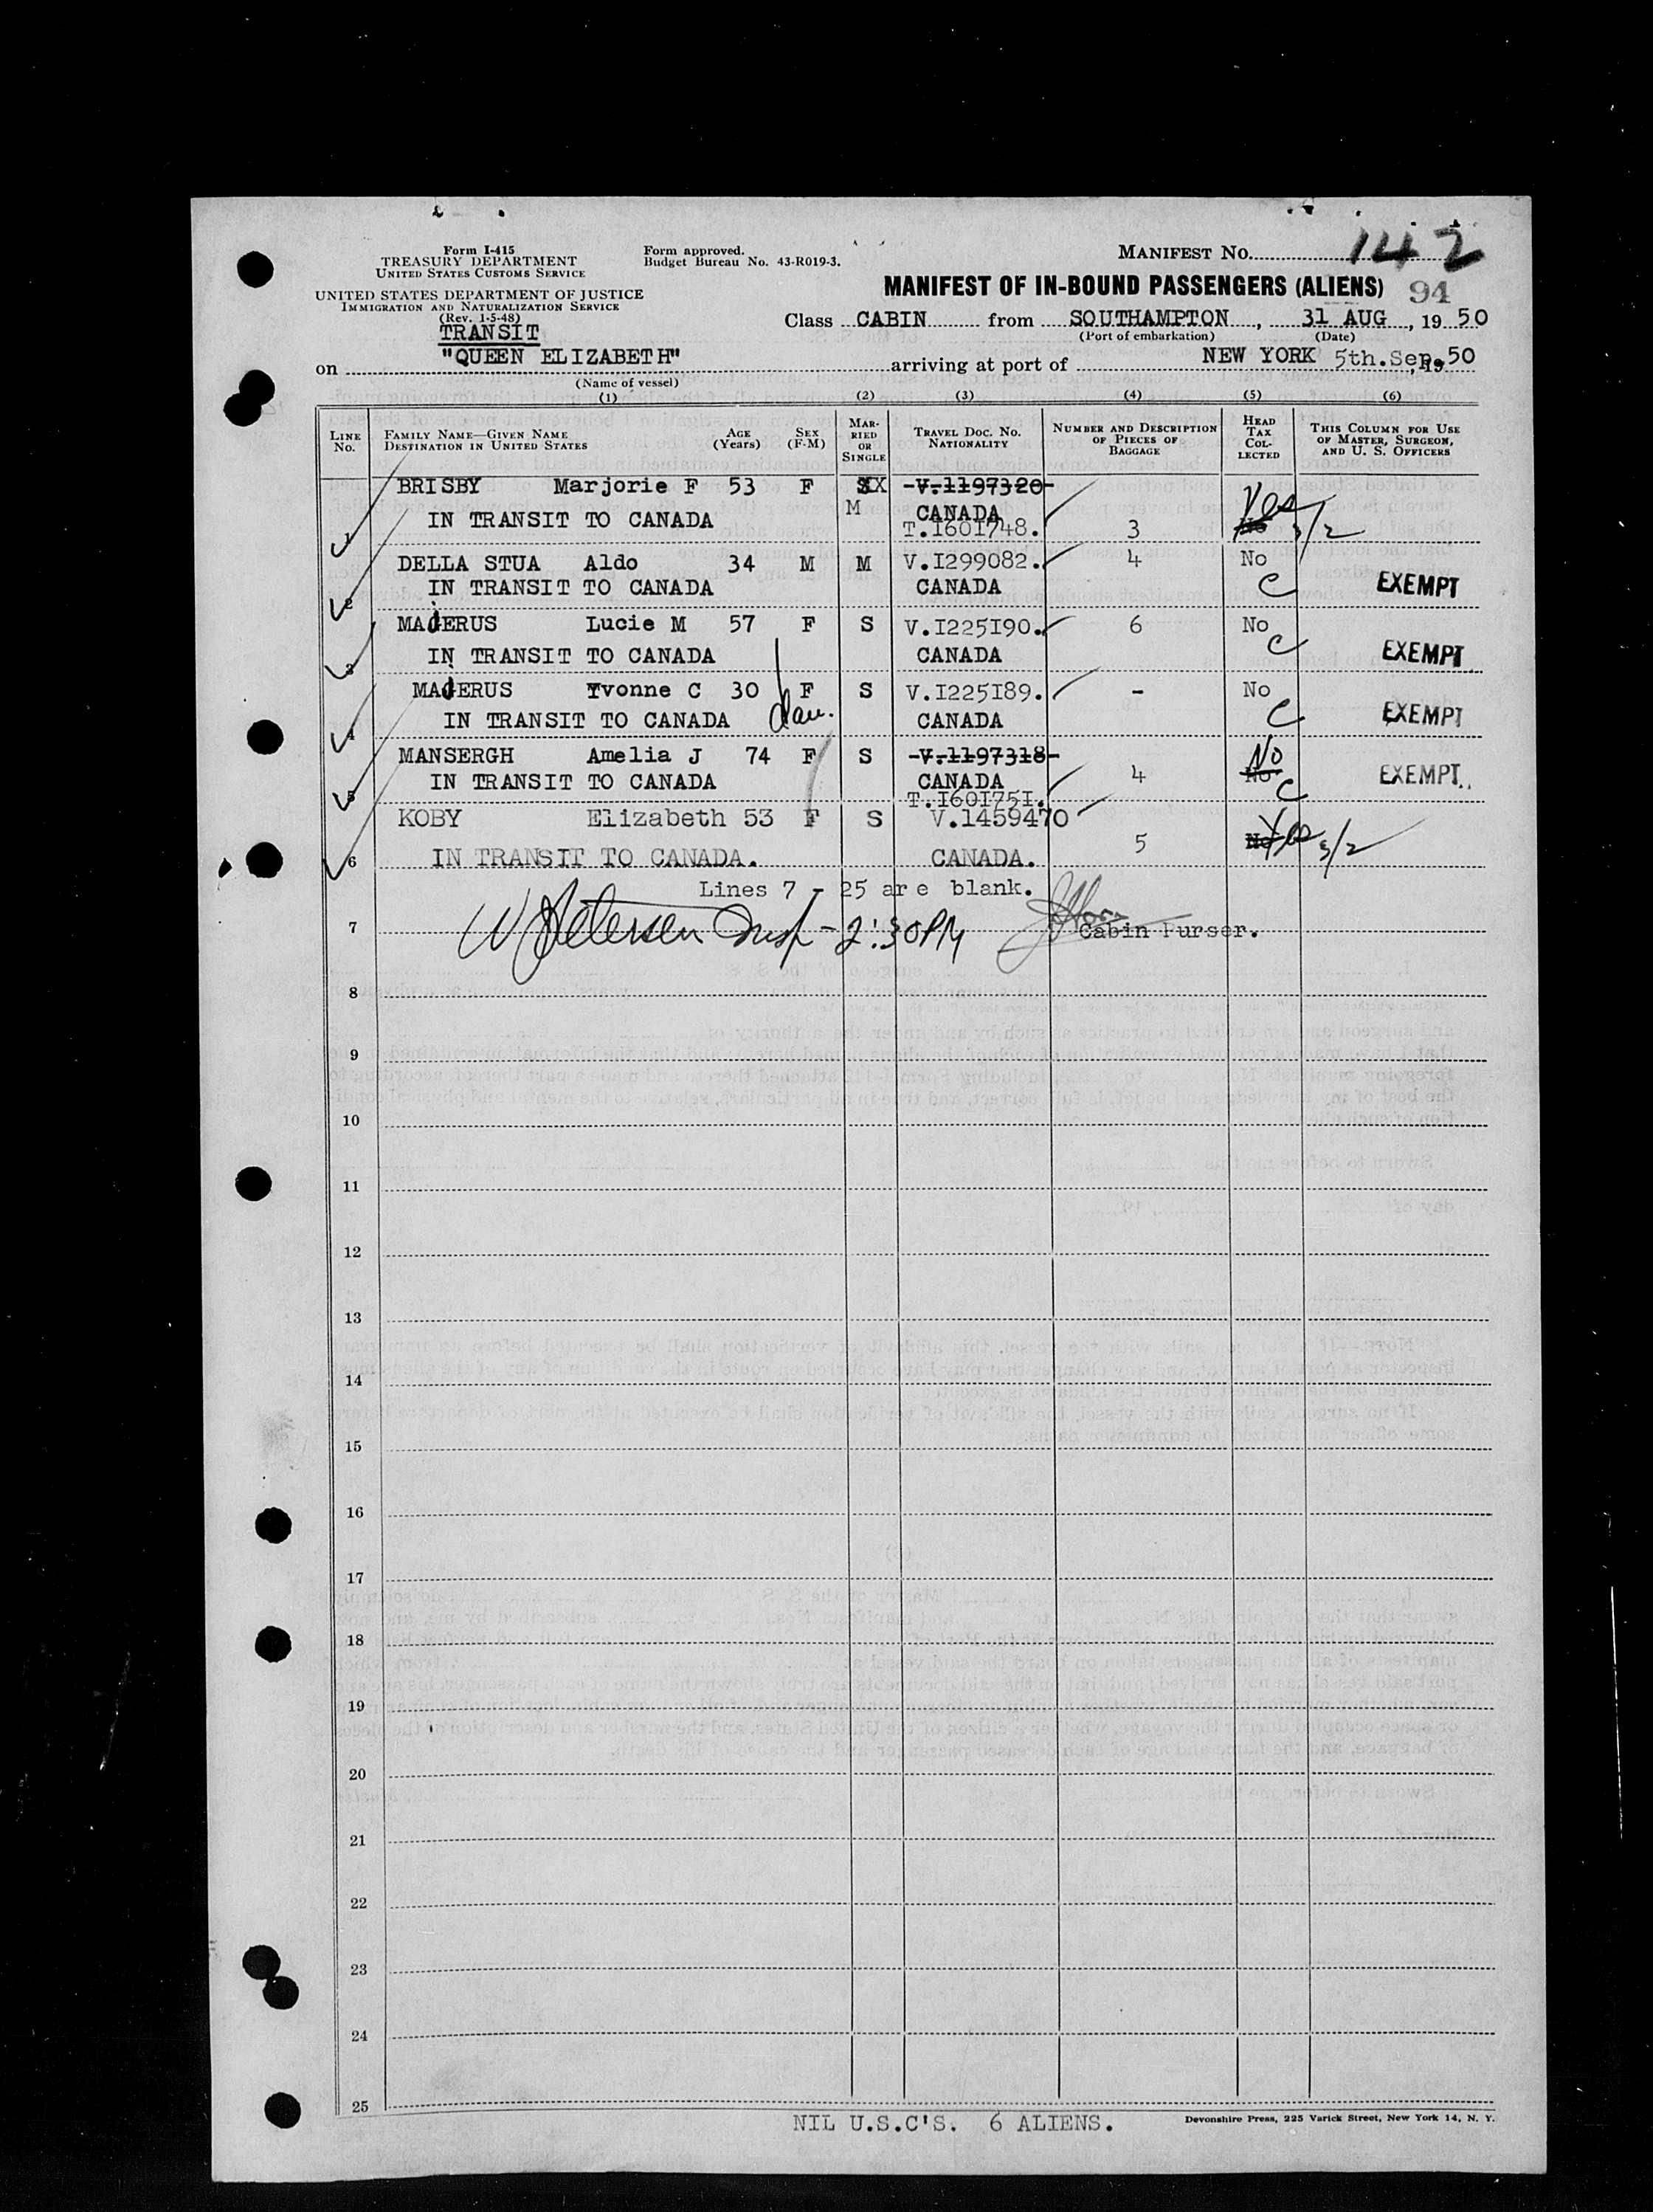 Form I-415
TREASURY DEPARTMENT
UNITED STATES CUSTOMS SERVICE
UNITED STATES DEPARTMENT OF JUSTICE
IMMIGRATION AND NATURALIZATION SERVICE
(Rev. 1-5-48)
TRANSIT
Form approved.
Budget Bureau No. 43-R019-3.
MANIFEST No. 142
MANIFEST OF IN-BOUND PASSENGERS (ALIENS) 94
Class CABIN from SOUTHAMPTON, 31 AUG, 1950
(Port of embarkation) (Date)
on "QUEEN ELIZABETH" arriving at port of NEW YORK 5th.Sep, 1950
(Name of vessel)
(1) (2) (3) (4) (5) (6)
LINE No. FAMILY NAME—GIVEN NAME DESTINATION IN UNITED STATES AGE (Years) SEX (F-M) MARRIED OR SINGLE TRAVEL DOC. NO. NATIONALITY NUMBER AND DESCRIPTION OF PIECES OF BAGGAGE HEAD TAX COLLECTED THIS COLUMN FOR USE OF MASTER, SURGEON, AND U. S. OFFICERS
BRISBY Marjorie F 53 F V.1197320 Yes
M CANADA
1 IN TRANSIT TO CANADA T.I60I748. 3 No 3/2
DELLA STUA Aldo 34 M M V.I299082. 4 No
2 IN TRANSIT TO CANADA CANADA C EXEMPT
MAJERUS Lucie M 57 F S V.I225I90. 6 No
3 IN TRANSIT TO CANADA CANADA C EXEMPT
MAJERUS Yvonne C 30 F S V.I225I89. - No
4 IN TRANSIT TO CANADA dau. CANADA C EXEMPT
MANSERGH Amelia J 74 F S V.1197318 No
5 IN TRANSIT TO CANADA CANADA 4 No C EXEMPT
T.I60I75I.
KOBY Elizabeth 53 F S V.1459470
6 IN TRANSIT TO CANADA. CANADA. 5 No Yes 3/2
Lines 7 - 25 are blank.
7 W Petersen Insp - 2:30PM Cabin Purser.
8
9
10
11
12
13
14
15
16
17
18
19
20
21
22
23
24
25
NIL U.S.C'S. 6 ALIENS.
Devonshire Press, 225 Varick Street, New York 14, N. Y.